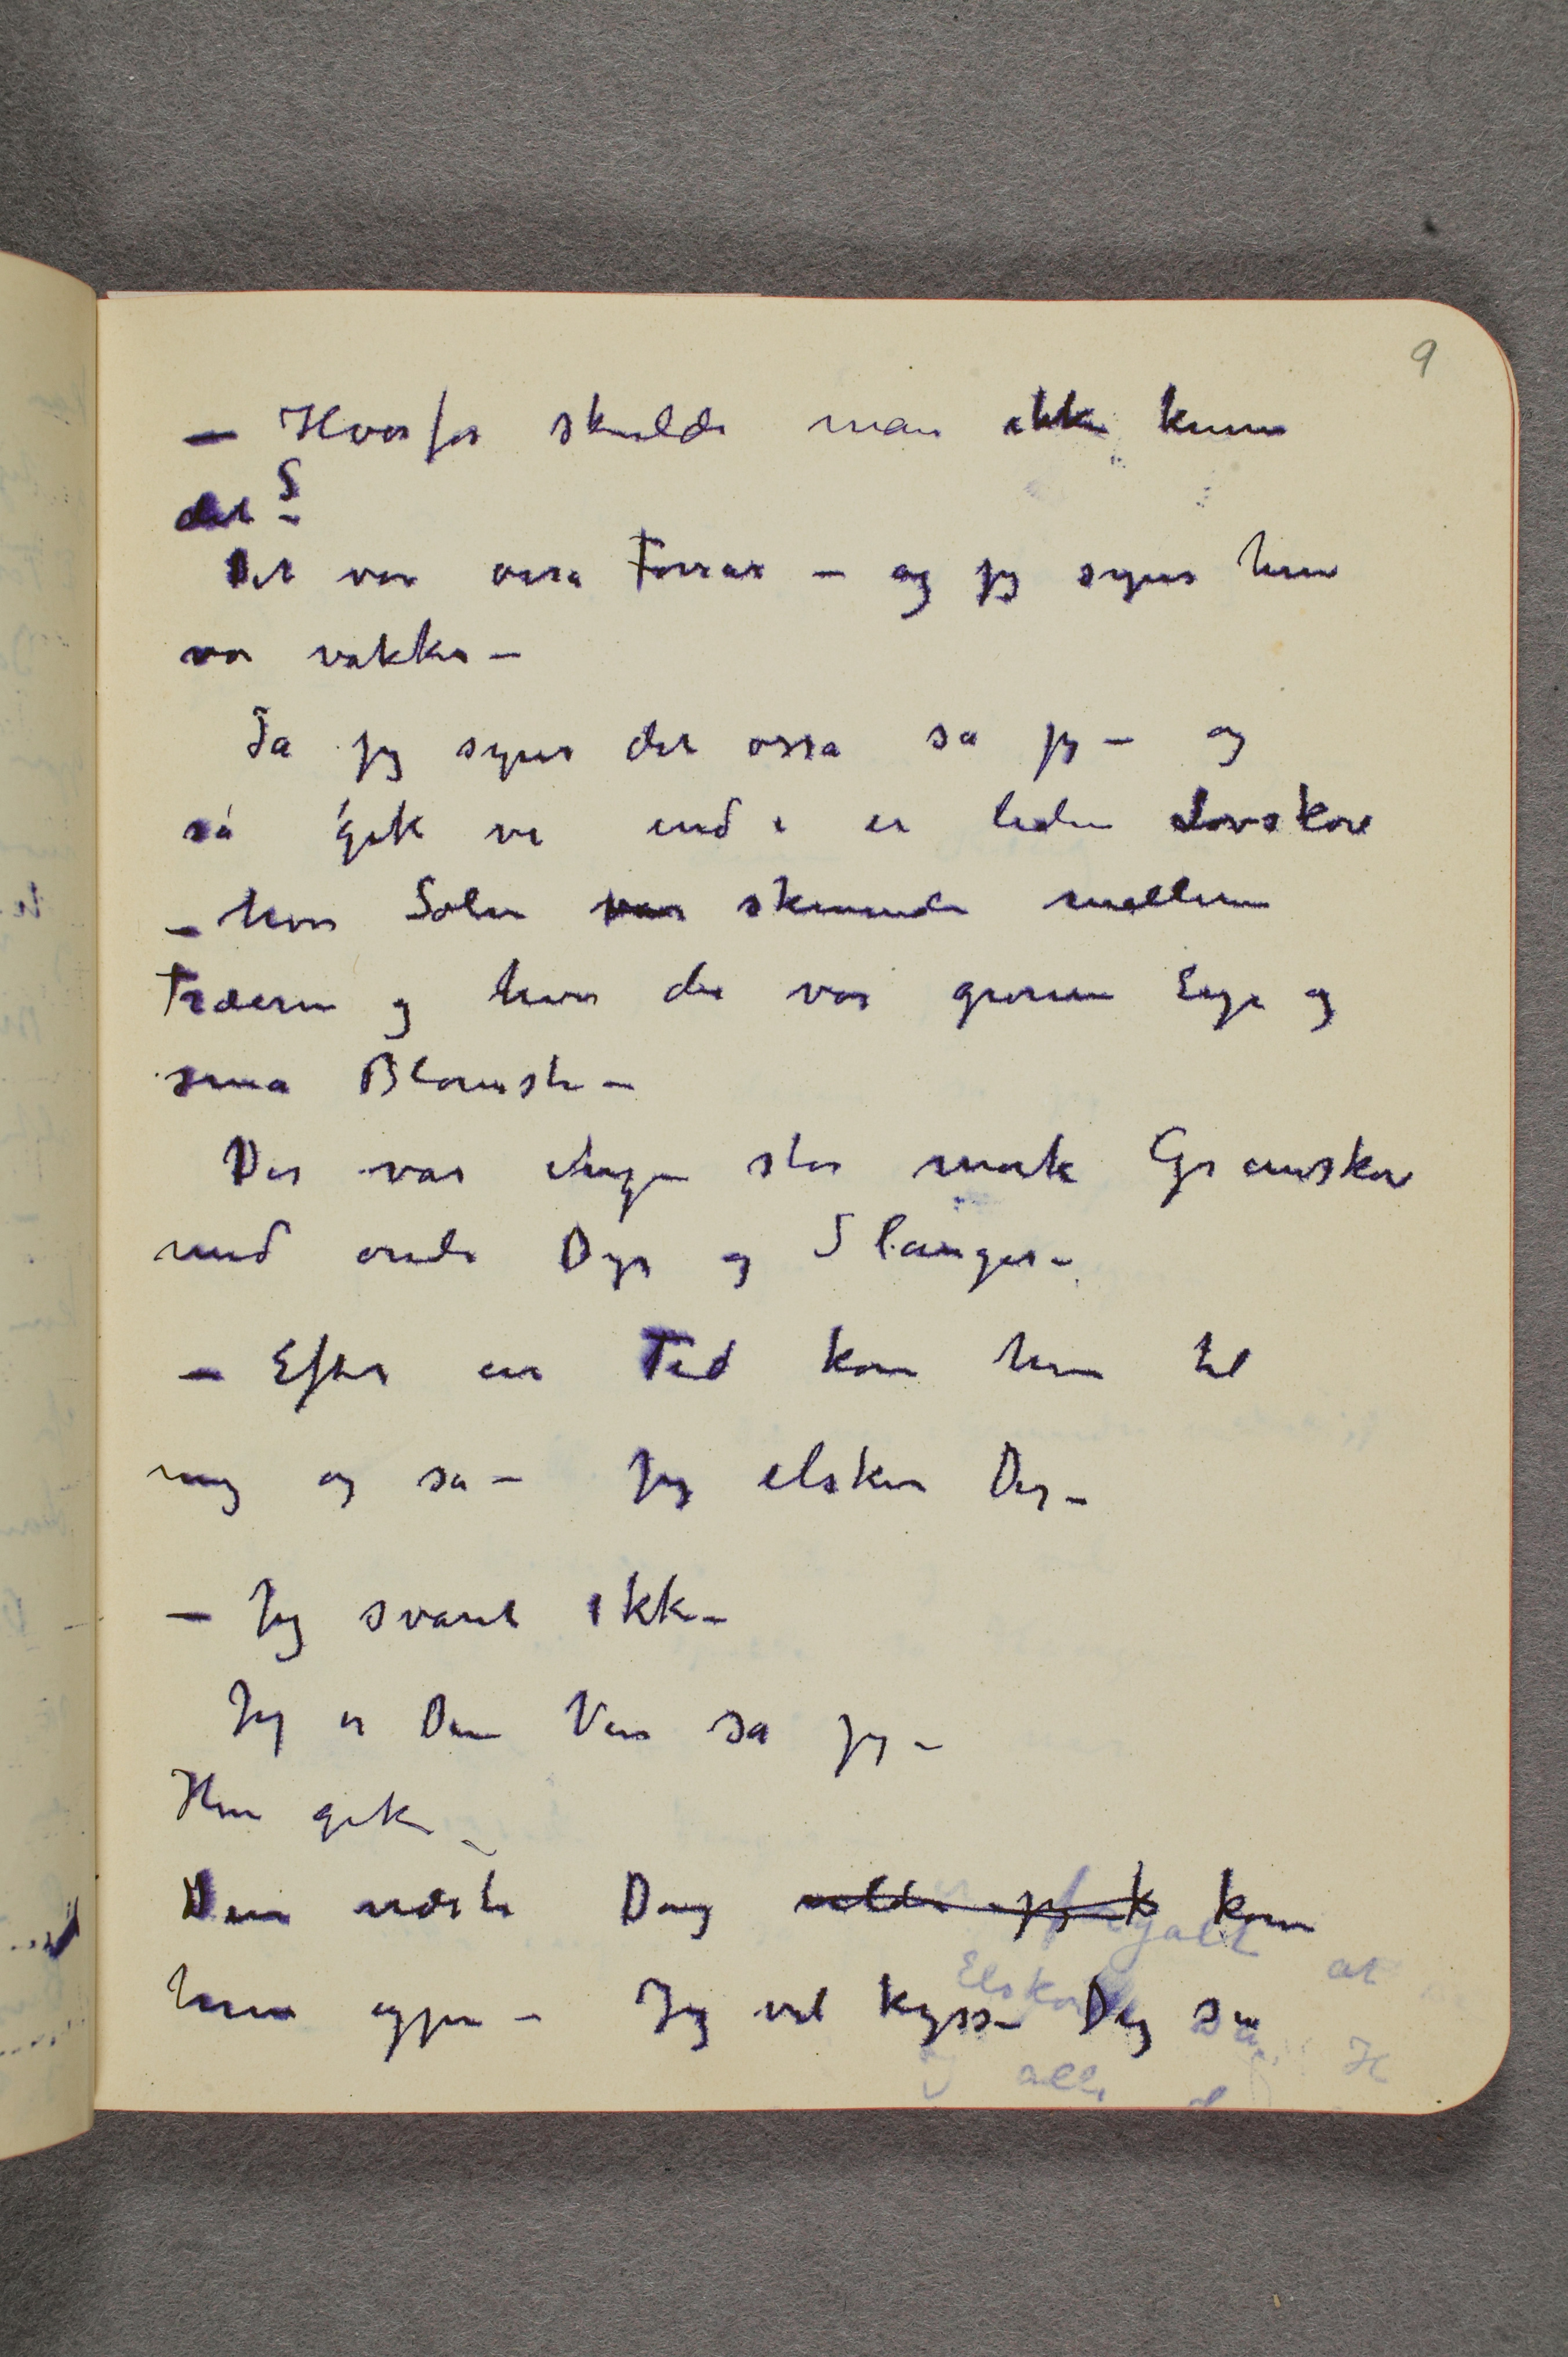 9
– Hvorfor skulde man ikke kunne
det?
Det var ossa Forrår – og jeg synes hun
var vakker –
Ja jeg synes det ossa sa jeg – og
så gik vi ind i en liden Løvskov
– hvor Solen var skinnende mellem
Træerne og hvor der var grønne Enge og
små Blomster –
Der var ingen stor mørk Granskov
med onde Dyr og Slanger –
– Efter en Tid kom hun til
mig og sa – Jeg elsker Dig –
– Jeg svarte ikke –
Jeg er Din Ven sa jeg –
Hun gik –
Den næste Dag vilde jeg k kom
hun igjen – Jeg vil kysse Dig sa